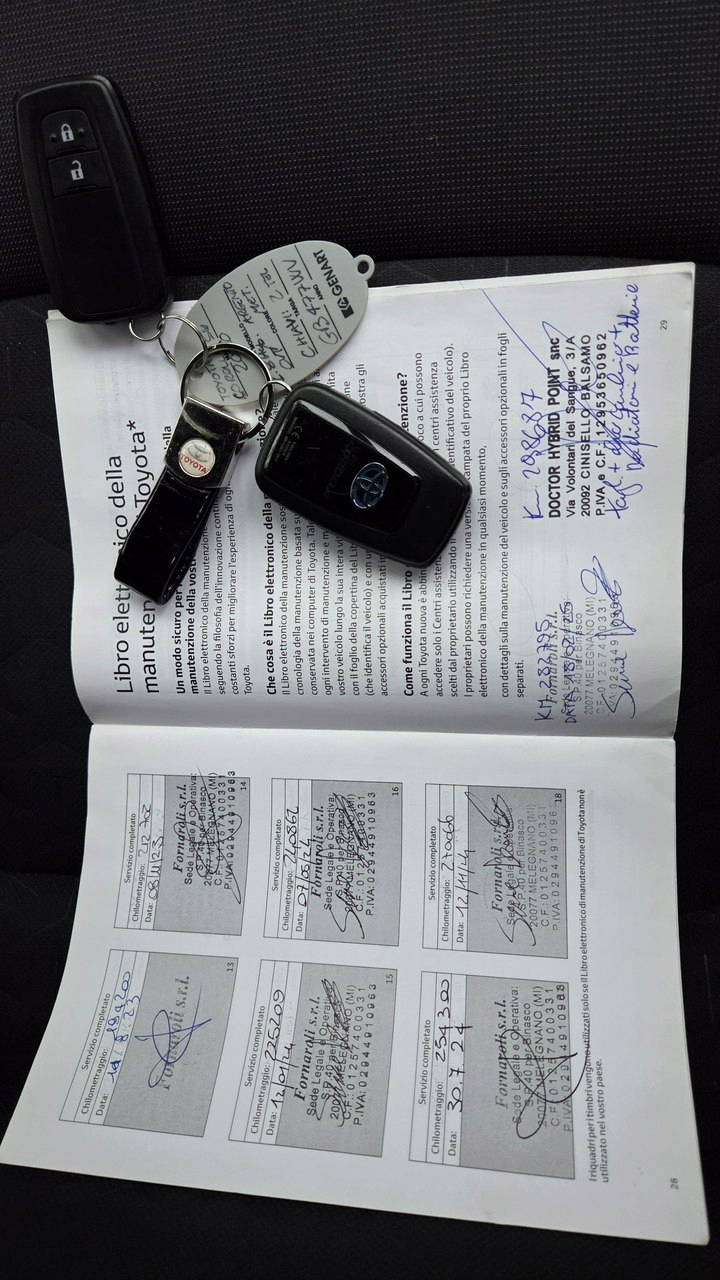 Servizio completato
Chilometraggio: 199200
Data: 19/8/23
Fornaroli s.r.l.
13
Servizio completato
Chilometraggio: 212702
Data: 08/11/23
Fornaroli s.r.l.
Sede Legale e Operativa:
S.P. 40 per Binasco
20077 MELEGNANO (MI)
C.F.: 01257400331
P.IVA: 02944910963
14
Servizio completato
Chilometraggio: 225209
Data: 12/01/24
Fornaroli s.r.l.
Sede Legale e Operativa:
S.P. 40 per Binasco
20077 MELEGNANO (MI)
C.F.: 01257400331
P.IVA: 02944910963
15
Servizio completato
Chilometraggio: 240862
Data: 07/05/24
Fornaroli s.r.l.
Sede Legale e Operativa:
S.P. 40 per Binasco
20077 MELEGNANO (MI)
C.F.: 01257400331
P.IVA: 02944910963
16
Servizio completato
Chilometraggio: 254300
Data: 30.7.24
Fornaroli s.r.l.
Sede Legale e Operativa:
S.P. 40 per Binasco
20077 MELEGNANO (MI)
C.F.: 01257400331
P.IVA: 02944910963
Servizio completato
Chilometraggio: 270066
Data: 12/11/24
Fornaroli s.r.l.
Sede Legale e
S.P. 40 per
20077 MELEGNANO (MI)
C.F.: 01257400331
P.IVA: 02944910963
18
I riquadri per i timbri vengono utilizzati solo se il Libro elettronico di manutenzione di Toyota non è
utilizzato nel vostro paese.
28
Libro elettronico della
manutenzione Toyota*
Un modo sicuro per
manutenzione della vostra
Il Libro elettronico della manutenzione
seguendo la filosofia dell'innovazione
costanti sforzi per migliorare l'esperienza di
Toyota.
Che cosa è il Libro elettronico della
Il Libro elettronico della manutenzione
cronologia della manutenzione basata
conservata nei computer di Toyota.
ogni intervento di manutenzione e
vostro veicolo lungo la sua intera
con il foglio della copertina del
(che identifica il veicolo) e con
accessori opzionali acquistati
Come funziona il Libro
A ogni Toyota nuova è
accedere solo i Centri assistenza
scelti dal proprietario utilizzando
identificativo del veicolo).
I proprietari possono richiedere una
stampata del proprio Libro
elettronico della manutenzione in qualsiasi momento,
con dettagli sulla manutenzione del veicolo e sugli accessori opzionali in fogli
separati.
KM 282795
DATA
Fornaroli s.r.l.
S.P. 40 per Binasco
20077 MELEGNANO (MI)
C.F.: 01257400331
P.IVA: 02944910963
Km 298687
DOCTOR HYBRID POINT snc
Via Volontari del Sangue, 3/A
20092 CINISELLO BALSAMO
P.IVA e C.F. 12953650962
29
GENART
TARGA
COLORE
MODELLO
TOYOTA